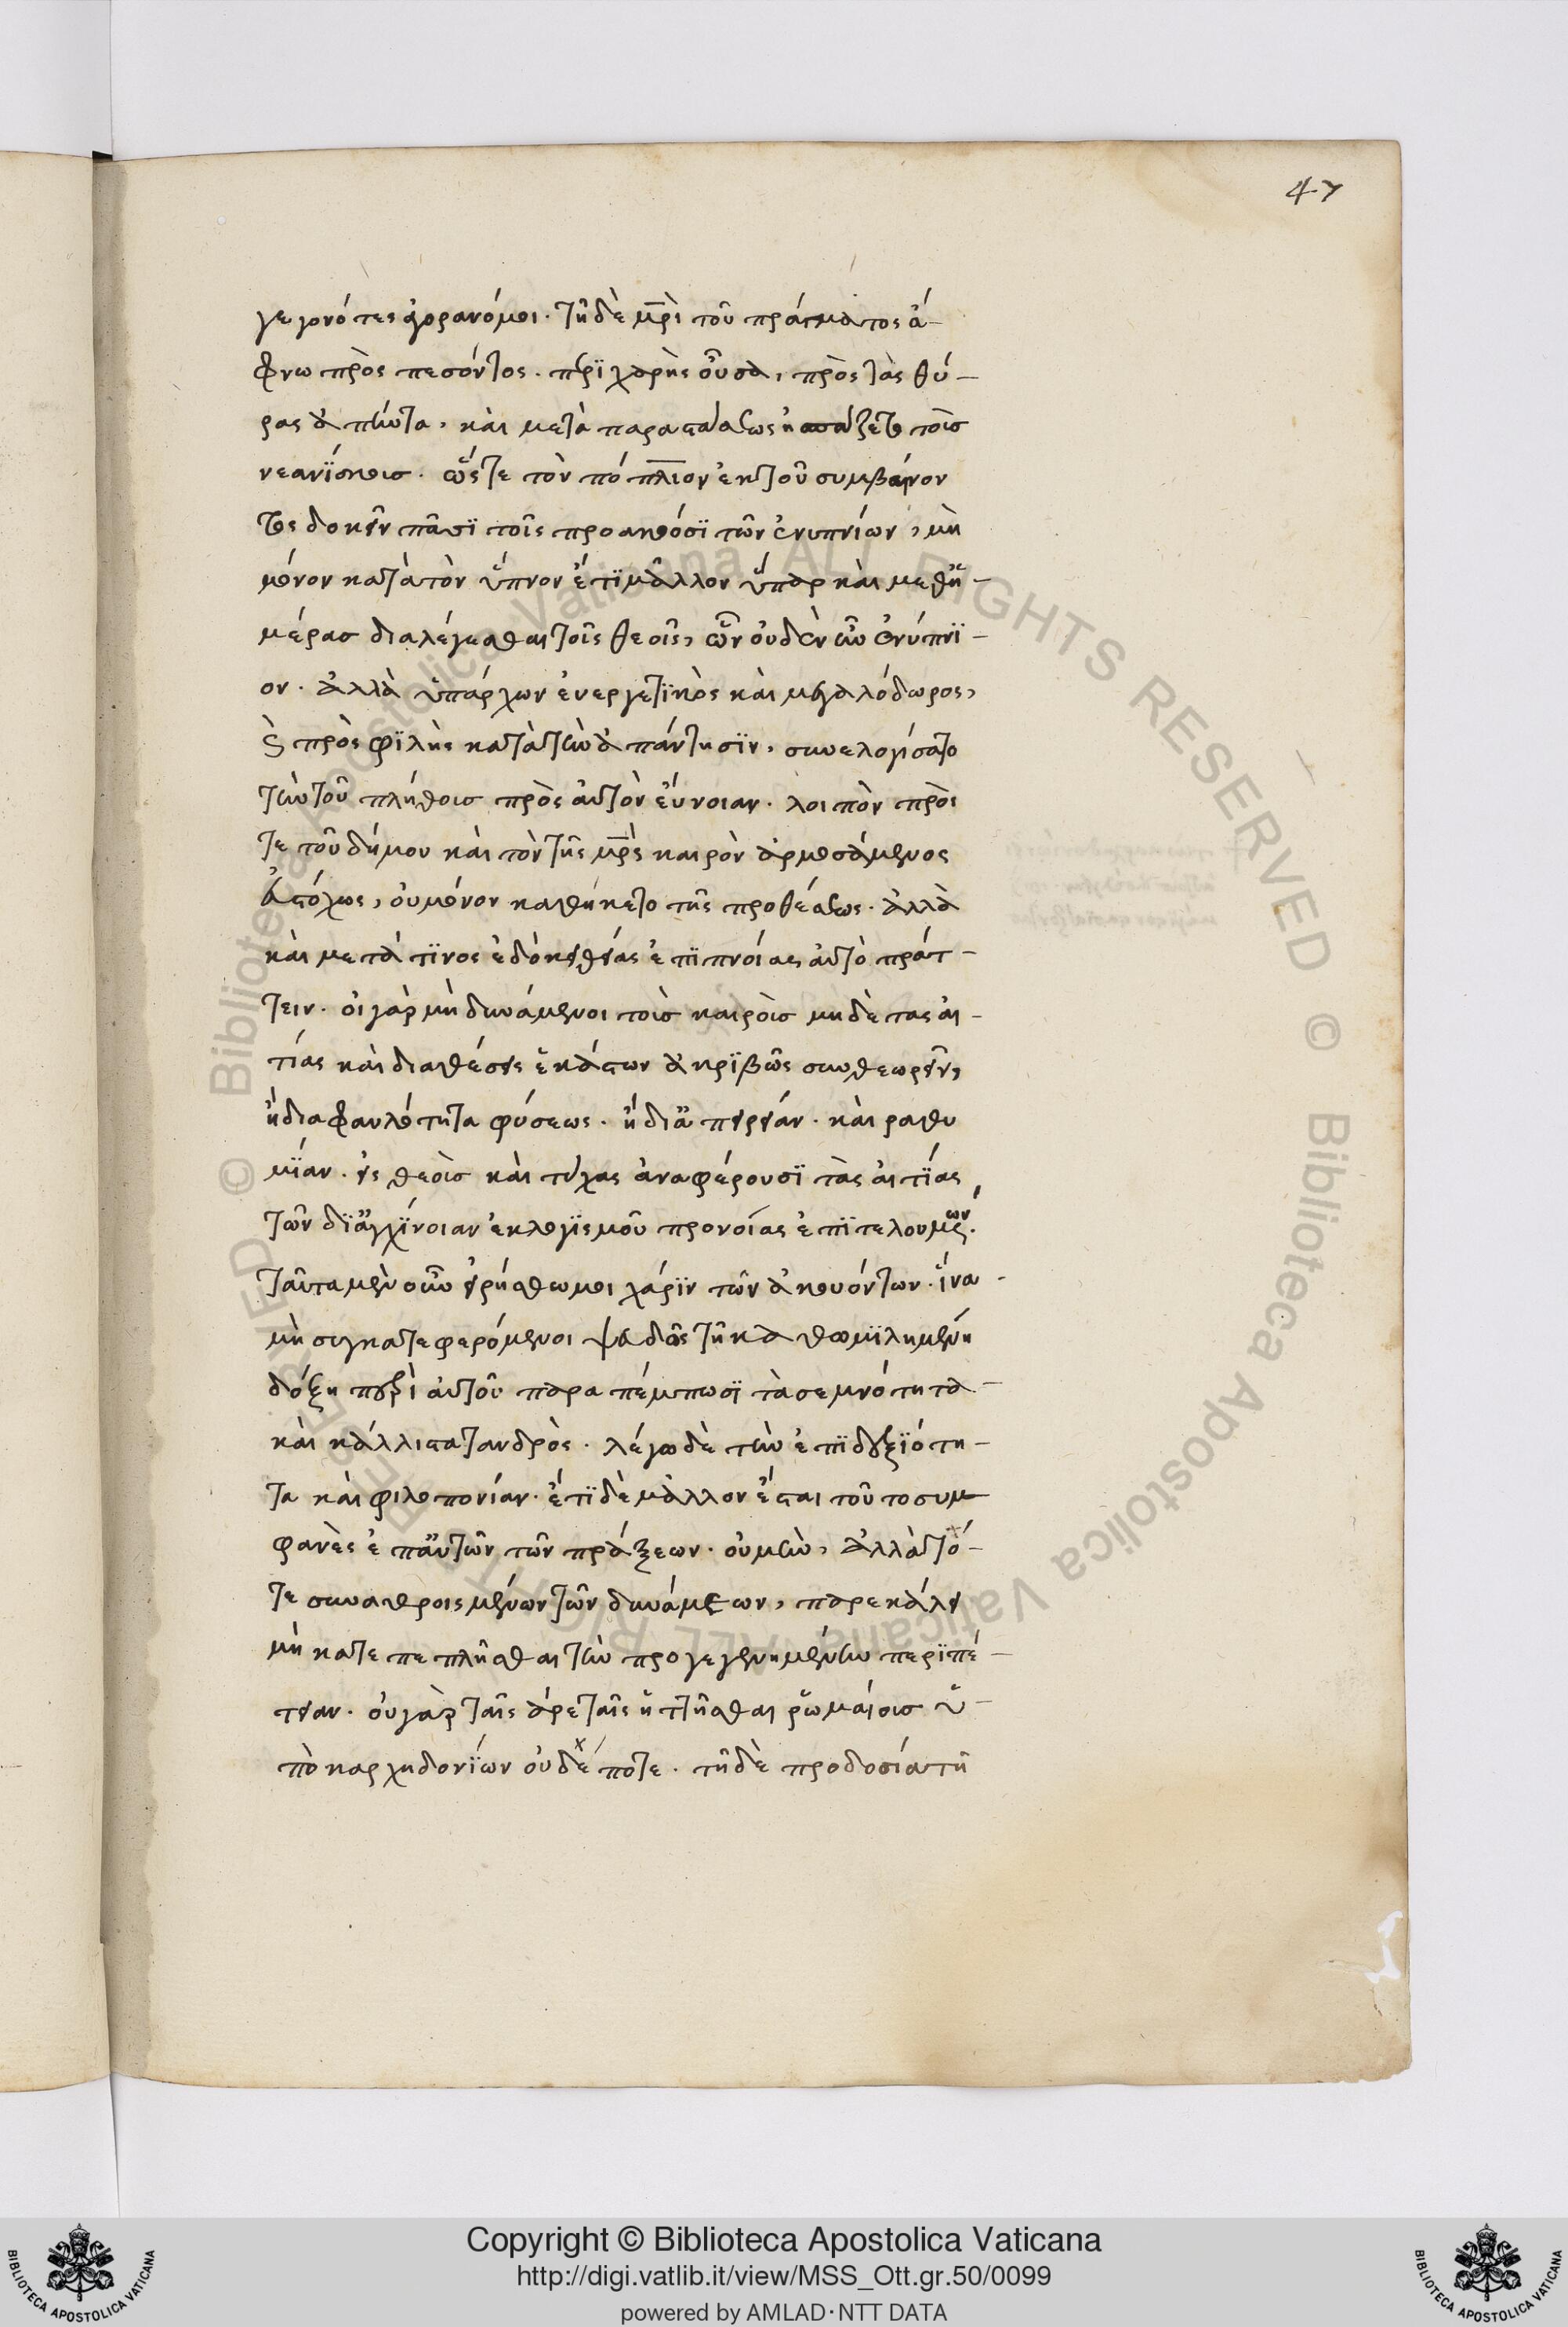 47
γεγονότες ἀγορανόμοι. τῇ δὲ μρὶ τοῦ πράγματος ἄ-
φνω πρὸς πεσόντος. περιχαρὴς οὖσα, πρὸς τὰς θύ-
ρας ἀπήντα, καὶ μετὰ παραστάσεως ἠσπάζετο τοῖς
νεανίσκοις. ὥστε τὸν πόπλιον ἐκ τοῦ συμβαίνον
τος δοκεῖν πᾶσϊ τοῖς προακκόσϊ τῶν ἐνυπνίων, μὴ
μόνον κατὰ τὸν ὕπνον ἔτϊ μᾶλλον ὕπαρ καὶ μεθ' ἡ-
μέρας διαλέγεσθαι τοῖς θεοῖς, ὧν οὐδὲν ἦν ἐνύπνϊ-
ον. ἀλλὰ ὑπάρχων ἐυεργετϊκὸς καὶ μεγαλόδωρος,
καὶ πρὸς φϊλὴς κατὰ τὴν ἀπάντησϊν, συνελογίσατο
τὴν τοῦ πλήθοις πρὸς αὐτὸν εὔνοιαν. λοιπὸν πρὸς
τε τοῦ δήμου καὶ τὸν τῆς μρὸς καιρὸν ἁρμοσάμενος
εὐστόχως, οὐ μόνον καθήκετο τῆς προθέσεως. ἀλλὰ
καὶ μετά τϊνος ἐδόκει θείας ἐπϊπνοίας αὐτὸ πράτ-
τειν. οἱ γὰρ μὴ δυνάμενοι τοὶς καιροὶς μηδὲ τας αἰ-
τίας καὶ διαθέσεις ἑκάστων ἀκρϊβῶς συνθεωρεῖν,
ἢ δια φαυλότητα φύσεως. ἢ δι' ἀπειρείαν. καὶ ραθυ
μϊαν. εἰς θεοὶς καὶ τύχας ἀναφέρουσϊ τὰς αἰτϊας
τῶν δϊ' ἀγχϊνοιαν ἐκ λογϊσμοῦ προνοίας ἐπϊτελουμένων.
ταῦτα μὲν οὖν εἰρήσθω μοι χάρϊν τῶν ἀκουόντων. ἵνα
μὴ συγκατεφερόμενοι ψευδῶς τῇ καθωμϊλημένη
δόξη περὶ αὐτοῦ παρα πέμπωσϊ τὰ σεμνότητα
καὶ κάλλιστα τανδρὸς. λέγω δὲ τὴν ἐπϊδεξϊότη-
τα καὶ φιλοπονίαν. ἔτϊ δὲ μᾶλλον ἔσται τοῦτο συμ
φανὲς ἐπ' αὐτῶν τῶν πράξεων. οὐ μὴν, ἀλλὰ τό-
τε συναθροισμένων τῶν δυνάμεων, παρεκάλει
μὴ κατεπεπλῆσθαι τὴν προγεγενημένην περϊπέ-
τειαν. οὐ γὰρ ταῖς ἀρεταῖς ἡττῆσθαι ῥωμαίοις ὑ-
πὸ καρχηδονίων οὐδέποτε. τῇ δὲ προδοσίατῆ
Copyright © Biblioteca Apostolica Vaticana
http://digi.vatlib.it/view/MSS_Ott.gr.50/0099
powered by AMLAD·NTT DATA